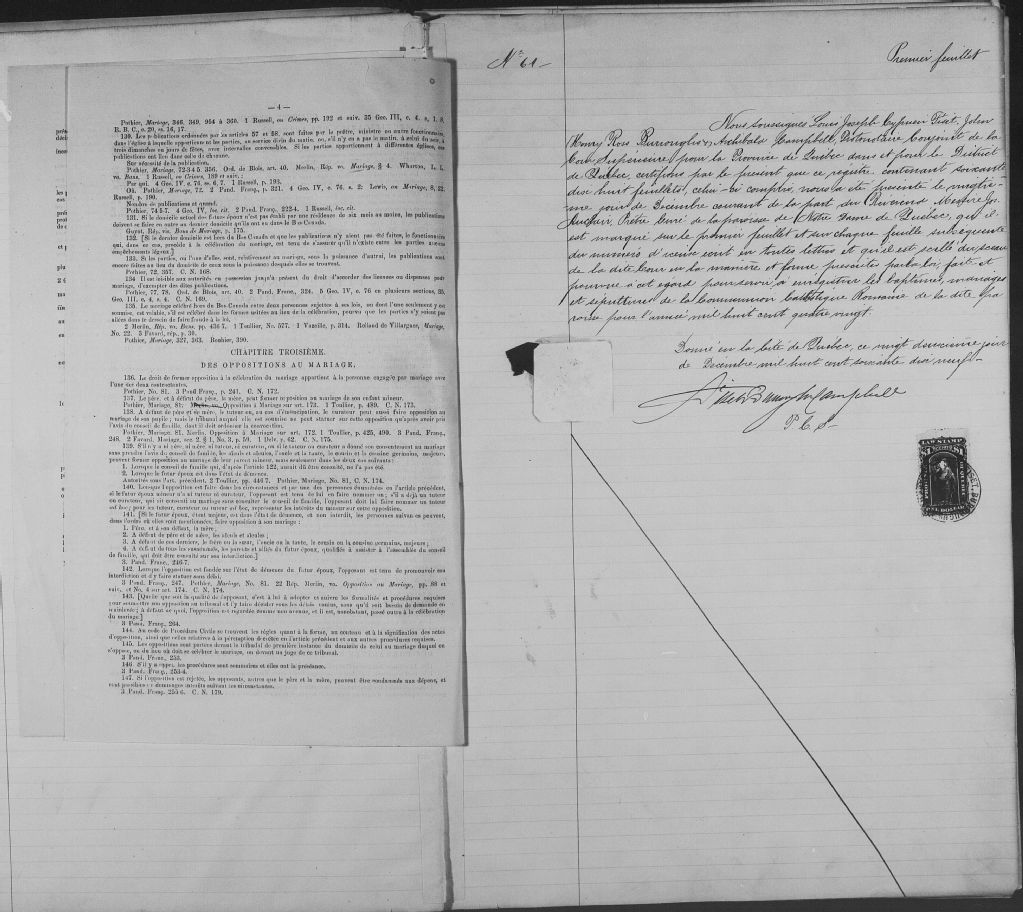 — 4 —
Pothier, Mariage, 346, 349, 354 à 360. 1 Russell, on Crimes, pp. 192 et suiv. 35 Geo. III, c. 4, s. 1, 3,
130. Les publications ordonnées par les articles 57 et 58, sont faites par le prêtre, ministre ou autre fonctionnaire,
dans l'église à laquelle appartiennent les parties, au service divin du matin, ou, s'il n'y en a pas le matin, à celui du soir, à
trois dimanches ou jours de fêtes, avec intervalles convenables. Si les parties appartiennent à différentes églises, ces
publications ont lieu dans celle de chacune.
Sur nécessité de la publication.
Pothier, Mariage, 72-3-4-5, 356. Ord. de Blois, art. 40. Merlin, Rép. vo. Mariage, § 4. Wharton, L. L.
vo. Bans. 1 Russell, on Crimes, 189 et suiv.
Par qui. 4 Geo. IV, c. 76, ss. 6, 7. 1 Russell, p. 193.
Où. Pothier, Mariage, 72. 2 Pand. Franç., p. 321. 4 Geo. IV, c. 76, s. 2. Lewis, on Mariage, 8, 22.
Russell, p. 190.
Nombre de publications et quand.
Pothier, 74-5-7. 4 Geo. IV, loc. cit. 2 Pand. Franç., 322-4. 1 Russell, loc. cit.
131. Si le domicile actuel des futurs époux n'est pas établi par une résidence de six mois au moins, les publications
doivent se faire en outre au dernier domicile qu'ils ont eu dans le Bas-Canada.
Guyot, Rép., vo. Bans de Mariage, p. 175.
132. [Si le dernier domicile est hors du Bas-Canada et que les publications n'y aient pas été faites, le fonctionnaire
qui, dans ce cas, procède à la célébration du mariage, est tenu de s'assurer qu'il n'existe entre les parties aucun
empêchement légal.]
133. Si les parties, ou l'une d'elles, sont, relativement au mariage, sous la puissance d'autrui, les publications sont
encore faites au lieu du domicile de ceux sous la puissance desquels elles se trouvent.
Pothier, 72, 357. C. N. 168.
134. Il est loisible aux autorités en possession jusqu'à présent du droit d'accorder des licences ou dispenses pour
mariage, d'exempter des dites publications.
Pothier, 77, 78. Ord. de Blois, art. 40. 2 Pand. Franç., 324. 5 Geo. IV, c. 76 en plusieurs sections, 35.
Geo. III, c. 4, s. 4. C. N. 169.
135. Le mariage célébré hors du Bas-Canada entre deux personnes sujettes à ses lois, ou dont l'une seulement y est
soumise, est valable, s'il est célébré dans les formes usitées au lieu de la célébration, pourvu que les parties n'y soient pas
allées dans le dessein de faire fraude à la loi.
2 Merlin, Rép. vo. Bans, pp. 436-7. 1 Toullier, No. 577. 1 Vazeille, p. 314. Rolland de Villargues, Mariage,
No. 22. 3 Favard, rép., p. 30.
Pothier, Mariage, 327, 363. Bouhier, 390.
CHAPITRE TROISIÈME.
DES OPPOSITIONS AU MARIAGE.
136. Le droit de former opposition à la célébration du mariage appartient à la personne engagée par mariage avec
l'une des deux contractantes.
Pothier, No. 81. 3 Pand. Franç., p. 241. C. N. 172.
137. Le père, et à défaut du père, la mère, peut former opposition au mariage de son enfant mineur.
Pothier, Mariage, 81. Merlin. Opposition à Mariage sur art. 173. 1 Toullier, p. 489. C. N. 173.
138. A défaut de père et de mère, le tuteur ou, au cas d'émancipation, le curateur peut aussi faire opposition au
mariage de son pupille; mais le tribunal auquel elle est soumise ne peut statuer sur cette opposition qu'après avoir pris
l'avis du conseil de famille, dont il doit ordonner la convocation.
Pothier, Mariage, 81. Merlin. Opposition à Mariage sur art. 172. 1 Toullier, p. 425, 490. 3 Pand. Franç.,
248. 2 Favard. Mariage, sec. 2, § 1, No. 3, p. 59. 1 Delv. p. 62. C. N. 175.
139. S'il n'y a ni père, ni mère, ni tuteur, ni curateur, ou si le tuteur ou curateur a donné son consentement au mariage
sans prendre l'avis du conseil de famille, les aïeuls et aïeules, l'oncle et la tante, le cousin et la cousine germains, majeurs,
peuvent former opposition au mariage de leur parent mineur, mais seulement dans les deux cas suivants:
1. Lorsque le conseil de famille qui, d'après l'article 122, aurait dû être consulté, ne l'a pas été.
2. Lorsque le futur époux est dans l'état de démence.
Autorités sous l'art. précédent. 2 Toullier, pp. 446-7. Pothier, Mariage, No. 81. C. N. 174.
140. Lorsque l'opposition est faite dans les circonstances et par une des personnes énumérées en l'article précédent,
si le futur époux mineur n'a ni tuteur ni curateur, l'opposant est tenu de lui en faire nommer un; s'il a déjà un tuteur
ou curateur, qui ait consenti au mariage sans consulter le conseil de famille, l'opposant doit lui faire nommer un tuteur
ad hoc; pour les tuteur, curateur ou tuteur ad hoc, représenter les intérêts du mineur sur cette opposition.
141. [Si le futur époux, étant majeur, est dans l'état de démence, et non interdit, les personnes suivantes peuvent,
dans l'ordre où elles sont mentionnées, faire opposition à son mariage:
1. Père, et à son défaut, la mère;
2. A défaut de père et de mère, les aïeuls et aïeules;
3. A défaut de ces derniers, le frère ou la sœur, l'oncle ou la tante, le cousin ou la cousine germains, majeurs;
4. A défaut de tous les susnommés, les parents et alliés du futur époux, qualifiés à assister à l'assemblée du conseil
de famille, qui doit être consulté sur son interdiction.]
3. Pand. Franç. 246-7.
142. Lorsque l'opposition est fondée sur l'état de démence du futur époux, l'opposant est tenu de promouvoir son
interdiction et d'y faire statuer sans délai.
3 Pand. Franç., 247. Pothier, Mariage, No. 81. 22 Rép. Merlin, vo. Opposition au Mariage, pp. 88 et
suiv., et No. 4 sur art. 174. C. N. 174.
143. [Quelle que soit la qualité de l'opposant, c'est à lui à adopter et suivre les formalités et procédures requises
pour soumettre son opposition au tribunal et l'y faire décider sous les délais voulus, sans qu'il soit besoin de demande en
mainlevée; à défaut de quoi, l'opposition est regardée comme non avenue, et il est, nonobstant, passé outre à la célébration
du mariage.]
3 Pand. Franç. 264.
144. Au code de Procédure Civile se trouvent les règles quant à la forme, au contenu et à la signification des actes
d'opposition, ainsi que celles relatives à la péremption décrétée en l'article précédent et aux autres procédures requises.
145. Les oppositions sont portées devant le tribunal de première instance du domicile de celui au mariage duquel on
s'oppose, ou du lieu où doit se célébrer le mariage, ou devant un juge de ce tribunal.
3 Pand. Franç., 253.
146. S'il y a appel, les procédures sont sommaires et elles ont la préséance.
3 Pand. Franç., 253-4.
147. Si l'opposition est rejetée, les opposants, autres que le père et la mère, peuvent être condamnés aux dépens, et
sont passibles de dommages-intérêts suivant les circonstances.
3 Pand. Franç. 255-6. C. N. 179.
No 61—
Premier feuillet
Nous soussignés Louis Joseph Cyprien Fiset, John
Henry Ross Burroughs & Archibald Campbell, Protonotaire Conjoint de la
Cour Supérieure, pour la Province de Quebec dans et pour le District
de Quebec, certifions par le present que ce régistre contenant soixante
dix huit feuillets, celui-ci compris, nous a été présenté le vingtiè-
me jour de Decembre courant de la part du Reverend Messire Jos.
Auclair, Prêtre Curé de la paroisse de Notre Dame de Quebec, qu'il
est marqué sur le premier feuillet et sur chaque feuille subsequente
du numero d'icelui écrit en toutes lettres et qu'il est scellé du sceau
de la dite Cour en la manière et forme prescrites par la loi, fait et
pourvu à cet égard pour servir à enregistrer les baptêmes, mariages
et sépultures de la Communion Catholique Romaine de la dite Pa-
roisse pour l'année mil huit cent quatre vingt.
Donné en la Cité de Quebec, ce vingt deuxieme jour
de Decembre mil huit cent soixante dix neuf—
Fiset Burroughs Campbell
P.C.S.
LAW STAMP
$1 $1
ONE DOLLAR